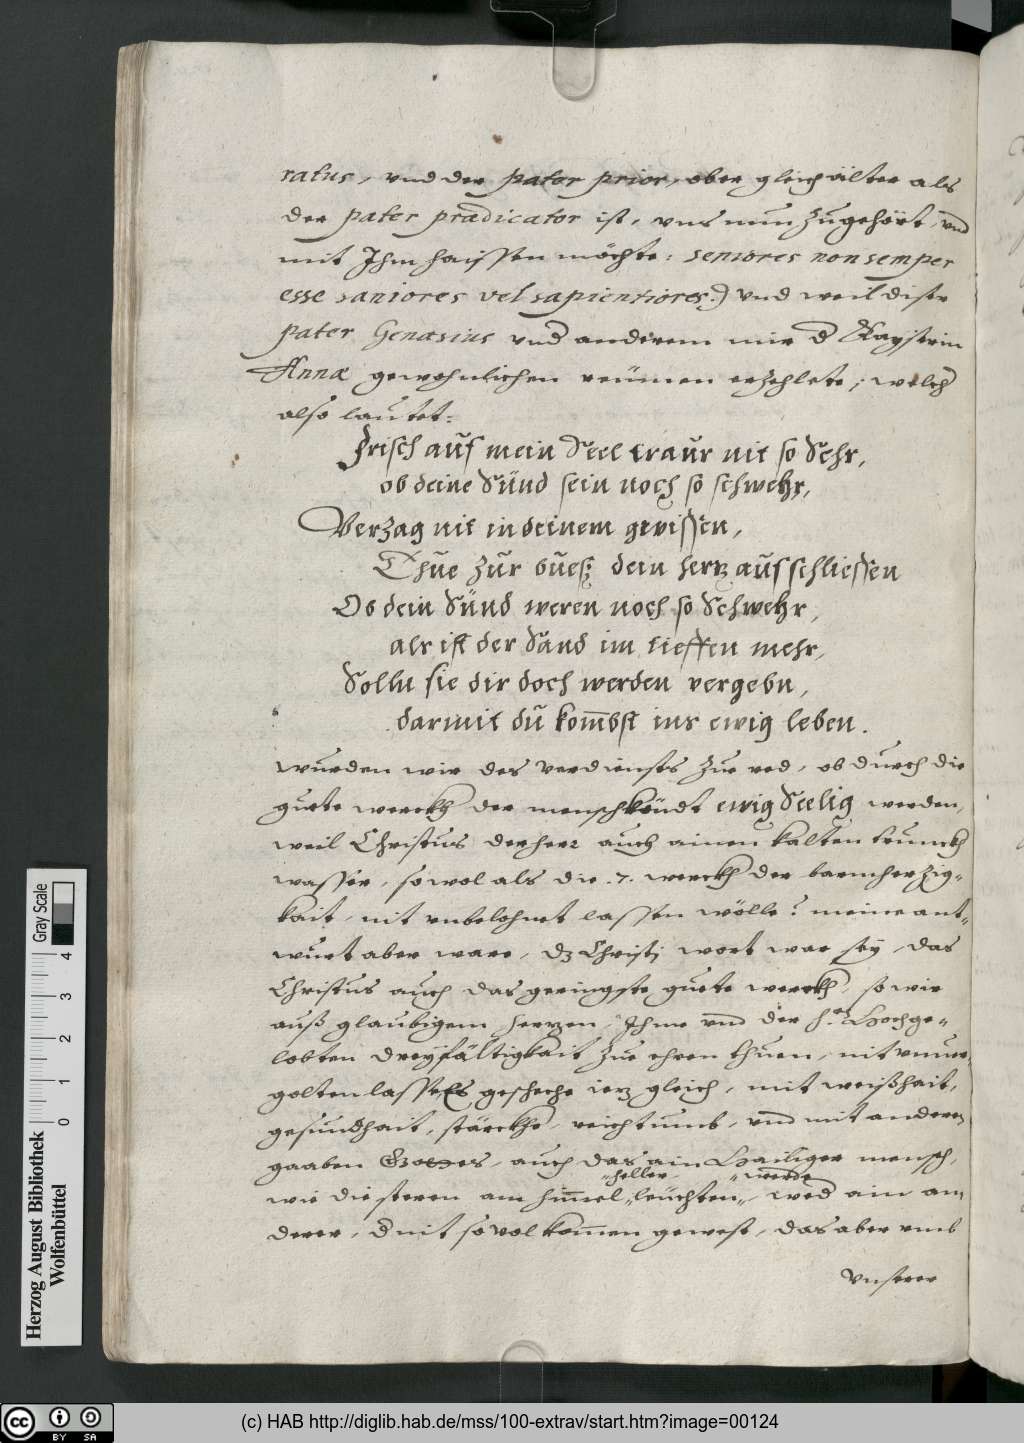 ratus, vnd der pater prior, aber gleich älter als
der pater prædicator ist, vns nun zugehört, vnd
mit Ihm haissen möchte: seniores non semper
esse saniores vel sapientiores:) vnd weil diser
pater Genæsius vnd anderem mir d Kayserin
Annæ gewohnlichen reümen erzehlete; welch
also lautet:
Frisch auf mein Seel traur nit so Sehr,
ob deine Sünd sein noch so schwehr,
Verzag nit in deinem gewissen,
Thue zur bueß dein hertz aufschliessen
Ob dein Sünd weren noch so Schwehr,
als ist der Sand im tieffen mehr,
Solln sie dir doch werden vergebn,
darmit du kombst ins ewig leben.
wurden wir des verdiensts zue red, ob durch die
guete werckh der mensch köndt ewig Seelig werden,
weil Christus der herr auch ainen kalten trunckh
wasser, sowol als die .7. werckh der barmherzig=
kait, nit vnbelohnet lassen wölle? meine ant=
wurt aber ware, dz Christi wort war sey, das
Christus auch das geringste guete werckh, so wir
auß glaubigem hertzen, Ihme vnd der h. Hochge=
lobten dreyfältigkait zue ehren thuen, nit vnuer=
golten lasse Es geschehe ietz gleich, mit weißhait,
gesundhait, störckhe, reichtumb, vnd mit anderen
gaaben Gottes, auch das ain Hailiger mensch,
heller werde
wie die steren am himel leüchten, wed ain an=
derer, d nit so volkomen gewest, das aber vmb
vnserer
Herzog August Bibliothek
Wolfenbüttel
0 1 2 3 4
Gray Scale
cc BY SA
(c) HAB http://diglib.hab.de/mss/100-extrav/start.htm?image=00124